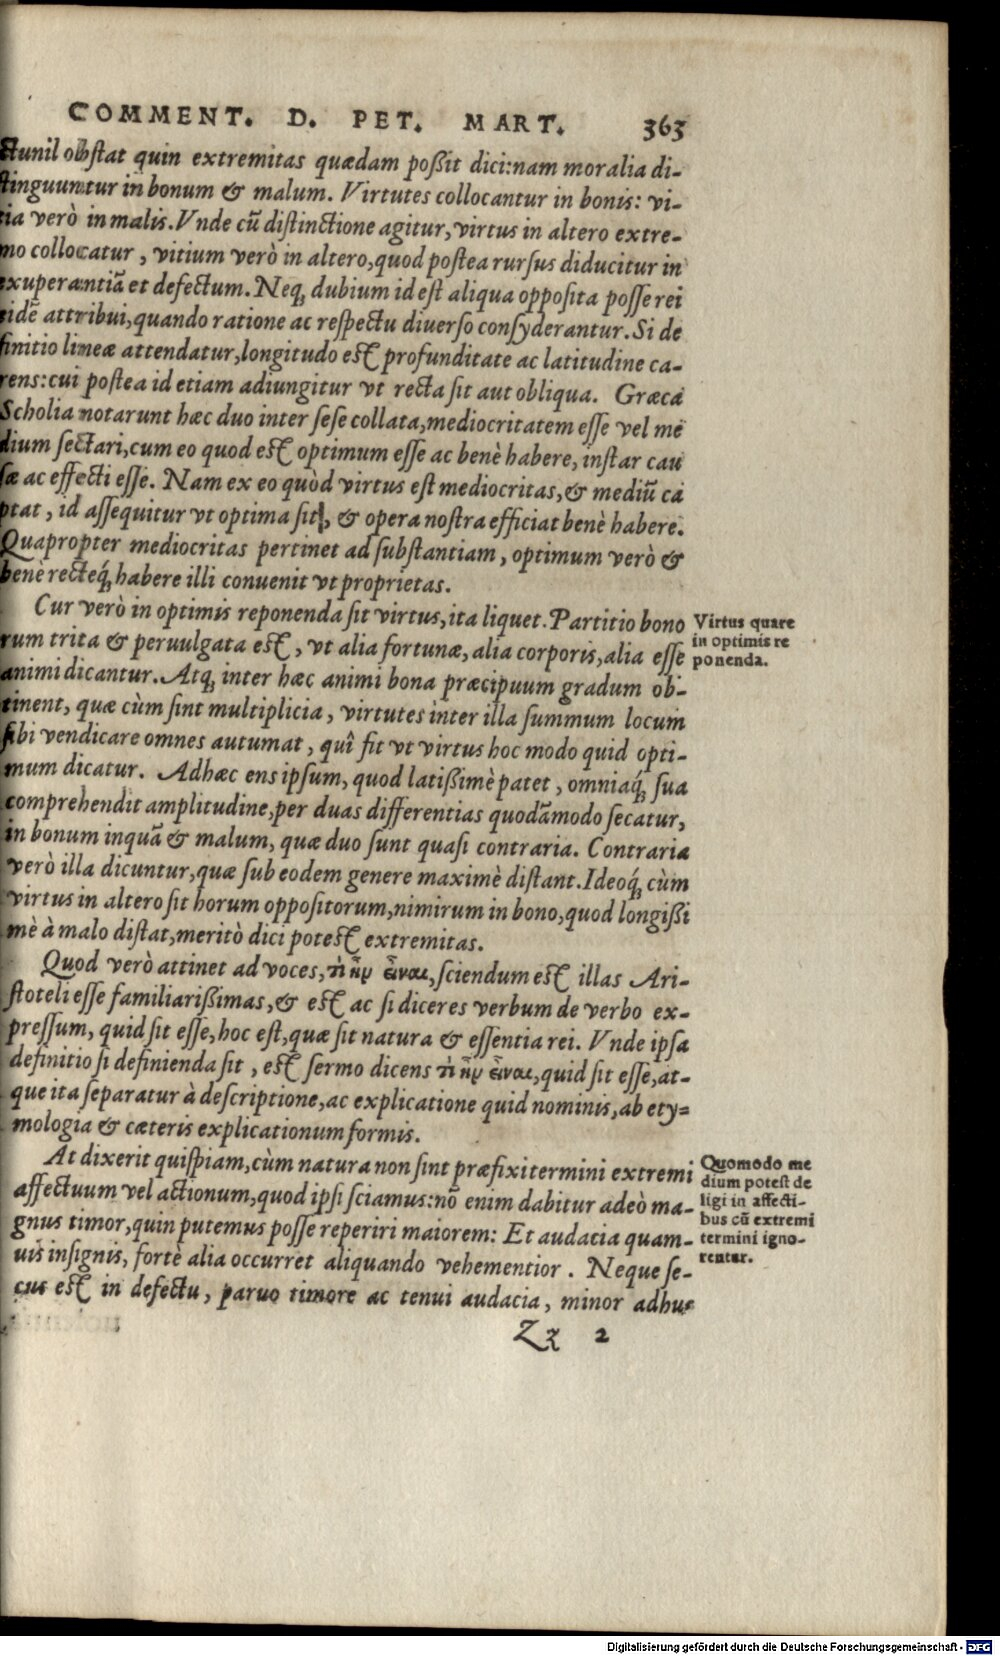 COMMENT. D. PET. MART. 363
ctunil obstat quin extremitas quædam poßit dici: nam moralia di-
stinguuntur in bonum & malum. Virtutes collocantur in bonis: vi-
tia verò in malis. Vnde cũ distinctione agitur, virtus in altero extre-
mo collocatur, vitium verò in altero, quod postea rursus diducitur in
exuperantiã et defectum. Neq; dubium id est aliqua opposita posse rei
eidẽ attribui, quando ratione ac respectu diuerso consyderantur. Si de
finitio lineæ attendatur, longitudo est profunditate ac latitudine ca-
rens: cui postea id etiam adiungitur vt recta sit aut obliqua. Græca
Scholia notarunt hæc duo inter sese collata, mediocritatem esse vel me
dium sectari, cum eo quod est optimum esse ac benè habere, instar cau
sæ ac effecti esse. Nam ex eo quòd virtus est mediocritas, & mediũ ca
ptat, id assequitur vt optima sit, & opera nostra efficiat benè habere.
Quapropter mediocritas pertinet ad substantiam, optimum verò &
benè recteq́; habere illi conuenit vt proprietas.
Cur verò in optimis reponenda sit virtus, ita liquet. Partitio bono
rum trita & peruulgata est, vt alia fortunæ, alia corporis, alia esse
animi dicantur. Atq; inter hæc animi bona præcipuum gradum ob-
tinent, quæ cùm sint multiplicia, virtutes inter illa summum locum
sibi vendicare omnes autumat, quî fit vt virtus hoc modo quid opti-
mum dicatur. Adhæc ens ipsum, quod latißimè patet, omniaq́; sua
comprehendit amplitudine, per duas differentias quodãmodo secatur,
in bonum inquã & malum, quæ duo sunt quasi contraria. Contraria
verò illa dicuntur, quæ sub eodem genere maximè distant. Ideoq́; cùm
virtus in altero sit horum oppositorum, nimirum in bono, quod longißi
mè à malo distat, meritò dici potest extremitas.
Virtus quare
in optimis re
ponenda.
Quod verò attinet ad voces, τὶ ἦν εἶναι, sciendum est illas Ari-
stoteli esse familiarißimas, & est ac si diceres verbum de verbo ex-
pressum, quid sit esse, hoc est, quæ sit natura & essentia rei. Vnde ipsa
definitio si definienda sit, est sermo dicens τὶ ἦν εἶναι, quid sit esse, at-
que ita separatur à descriptione, ac explicatione quid nominis, ab ety=
mologia & cæteris explicationum formis.
At dixerit quispiam, cùm natura non sint præfixi termini extremi
affectuum vel actionum, quod ipsi sciamus: nõ enim dabitur adeò ma-
gnus timor, quin putemus posse reperiri maiorem: Et audacia quam-
uis insignis, fortè alia occurret aliquando vehementior. Neque se-
cus est in defectu, paruo timore ac tenui audacia, minor adhuc
Quomodo me
dium potest de
ligi in affecti-
bus cũ extremi
termini igno-
rentur.
Zz 2
Digitalisierung gefördert durch die Deutsche Forschungsgemeinschaft - DFG